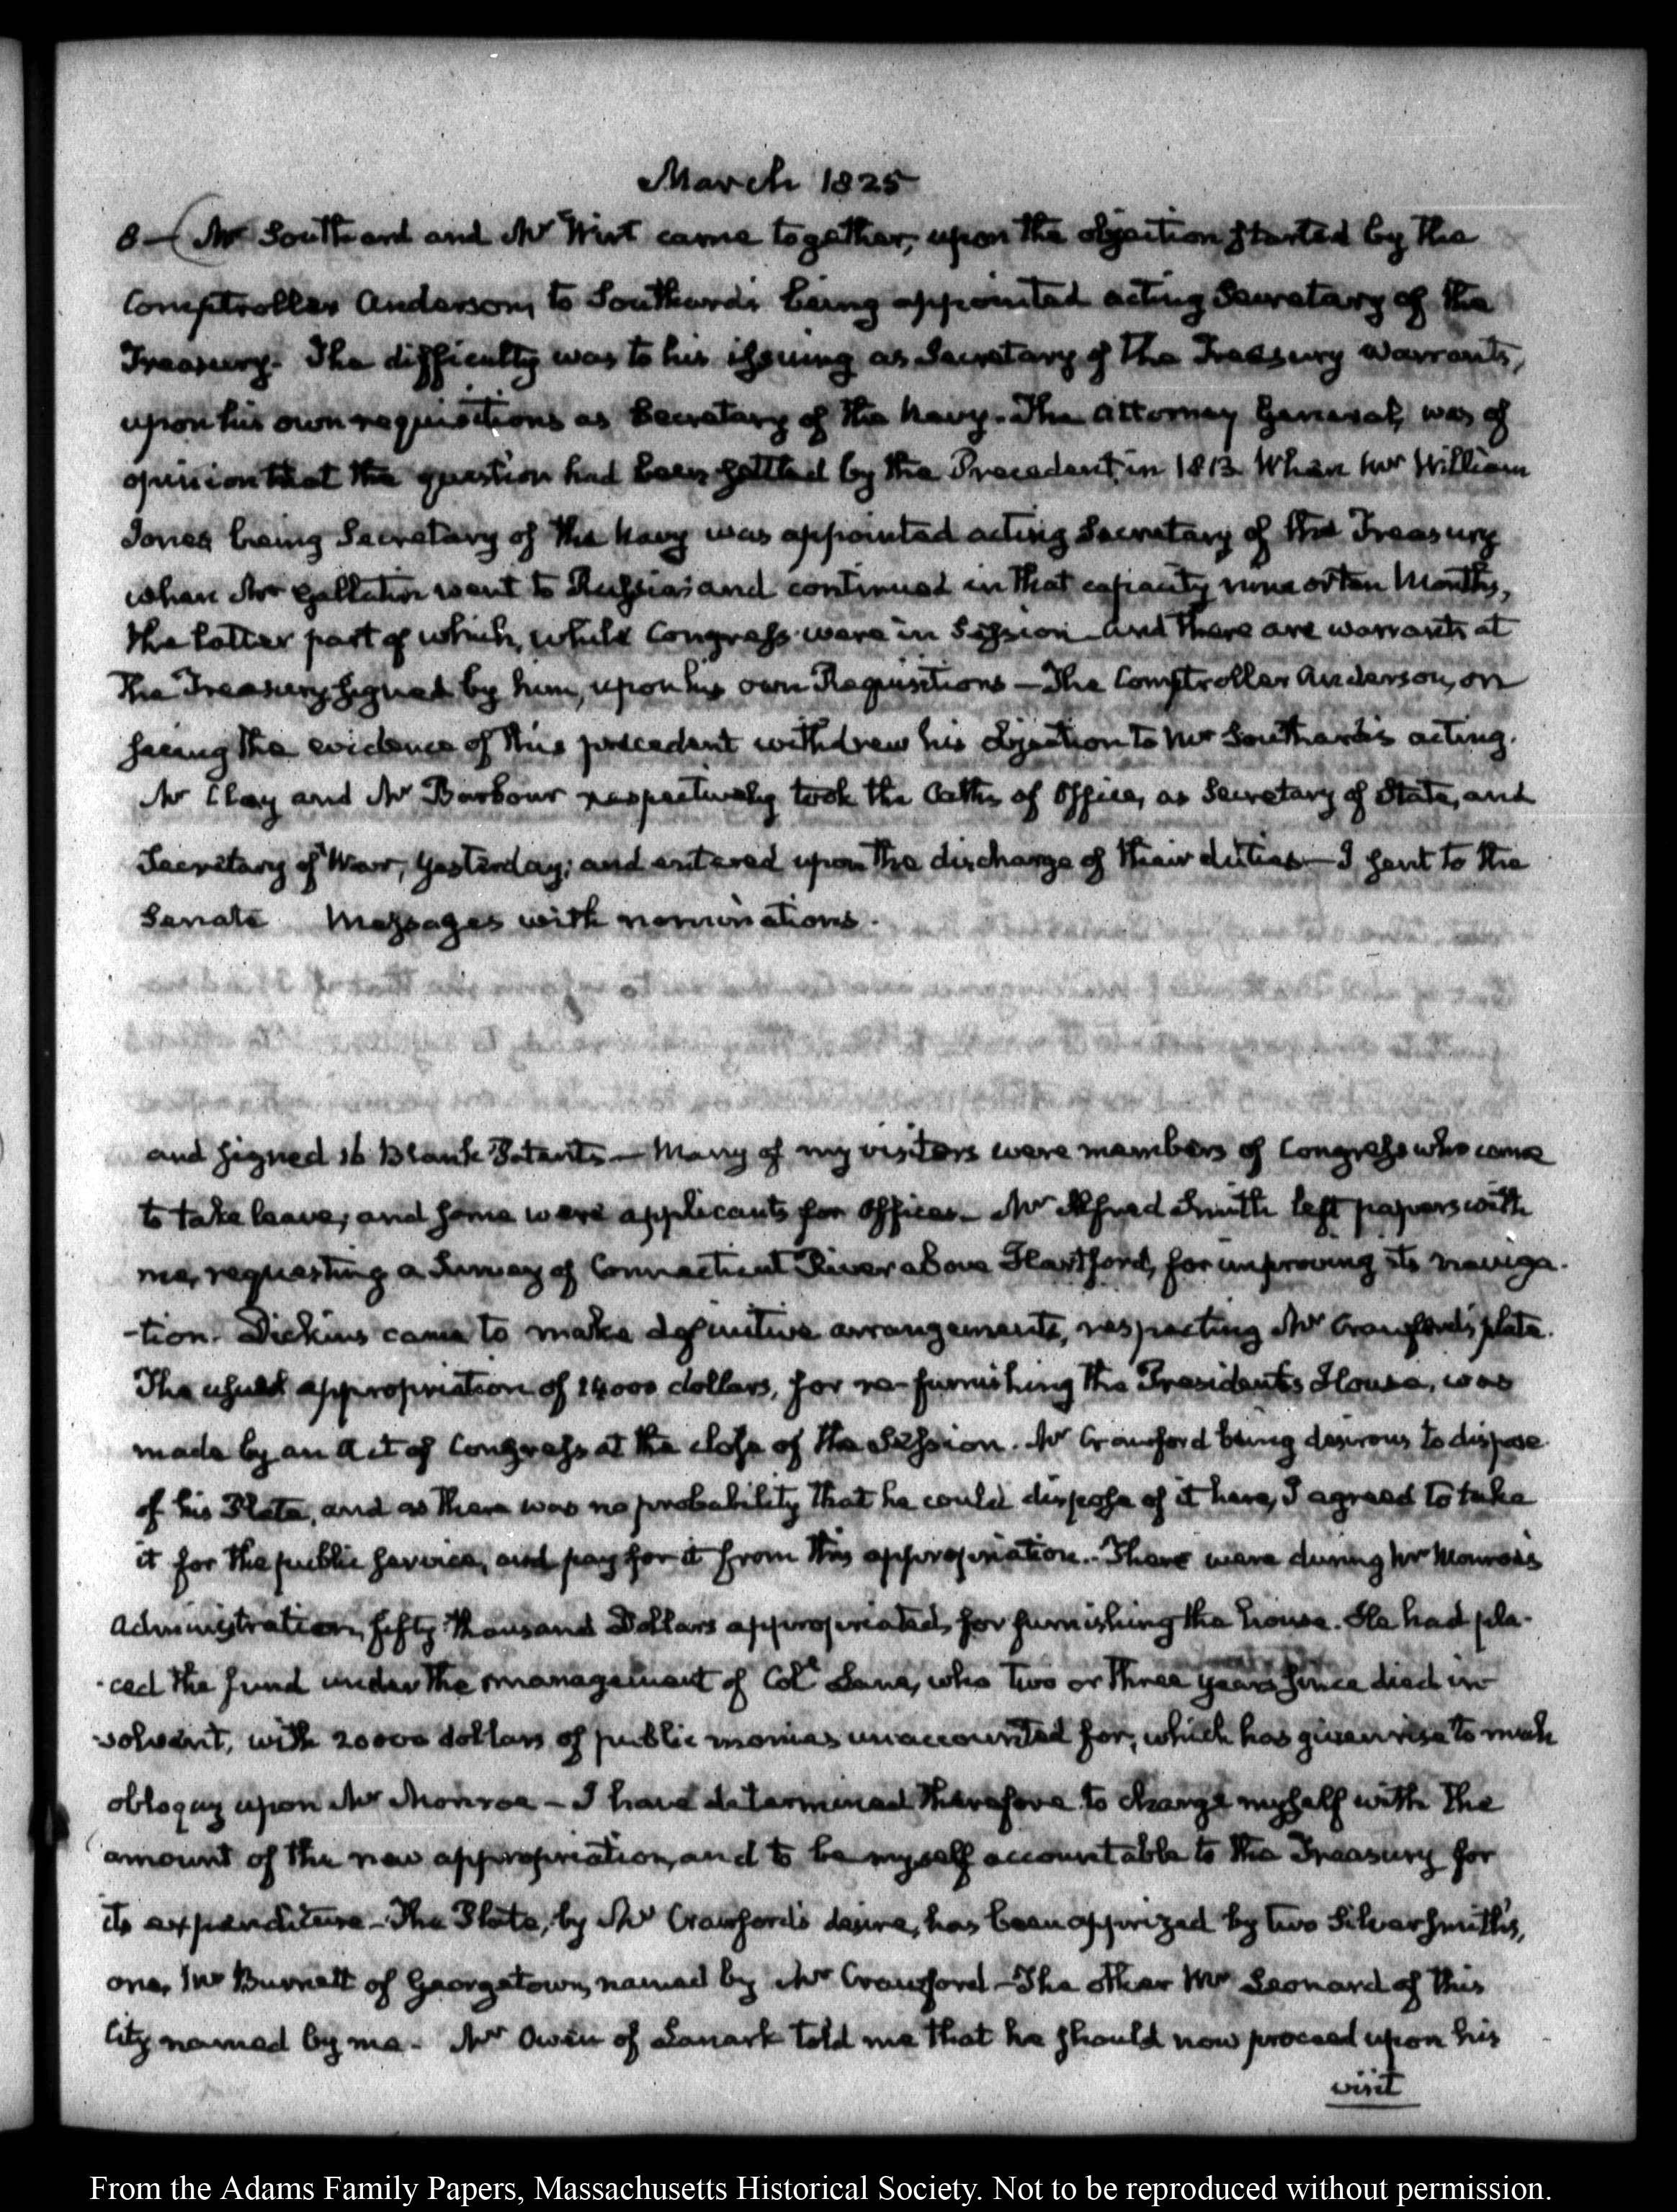 March 1825
8 — (Mr Southard and Mr Wirt came together, upon the objection started by the
Comptroller Anderson, to Southard's being appointed acting Secretary of the
Treasury. The difficulty was to his issuing as Secretary of the Treasury Warrants,
upon his own requisitions as Secretary of the Navy. The Attorney General, was of
opinion that the question had been settled by the Precedent in 1813. When Mr William
Jones being Secretary of the Navy was appointed acting Secretary of the Treasury
when Mr Gallatin went to Russia; and continued in that capacity nine or ten Months,
the latter part of which, while Congress were in Session and there are warrants at
the Treasury signed by him, upon his own Requisitions — The Comptroller Anderson, on
seeing the evidence of this precedent withdrew his objection to Mr Southard's acting.
Mr Clay and Mr Barbour respectively took the Oaths of Office, as Secretary of State, and
Secretary of War, yesterday; and entered upon the discharge of their duties — I sent to the
Senate Messages with nominations.
and signed 16 Blank Patents — Many of my visitors were members of Congress who came
to take leave; and some were applicants for Offices — Mr Alfred Smith left papers with
me, requesting a Survey of Connecticut River above Hartford, for improving its naviga-
-tion. Dickins came to make definitive arrangements, respecting Mr Crawford's plate.
The usual appropriation of 14000 dollars, for re-furnishing the President's House, was
made by an Act of Congress at the close of the Session. Mr Crawford being desirous to dispose
of his Plate, and as there was no probability that he could dispose of it here, I agreed to take
it for the public service, and pay for it from this appropriation. There were during Mr Monroe's
Administration, fifty thousand Dollars appropriated, for furnishing the house. He had pla-
-ced the fund under the management of Coll Lane, who two or three years since died in-
-solvent, with 20000 dollars of public monies unaccounted for, which has given rise to much
obloquy upon Mr Monroe — I have determined therefore to charge myself with the
amount of the new appropriation, and to be myself accountable to the Treasury for
its expenditure — The Plate, by Mr Crawford's desire, has been apprized by two Silversmiths,
one, Mr Burnett of Georgetown, named by Mr Crawford — The other Mr Leonard of this
City named by me — Mr Owen of Lanark told me that he should now proceed upon his
visit
From the Adams Family Papers, Massachusetts Historical Society. Not to be reproduced without permission.